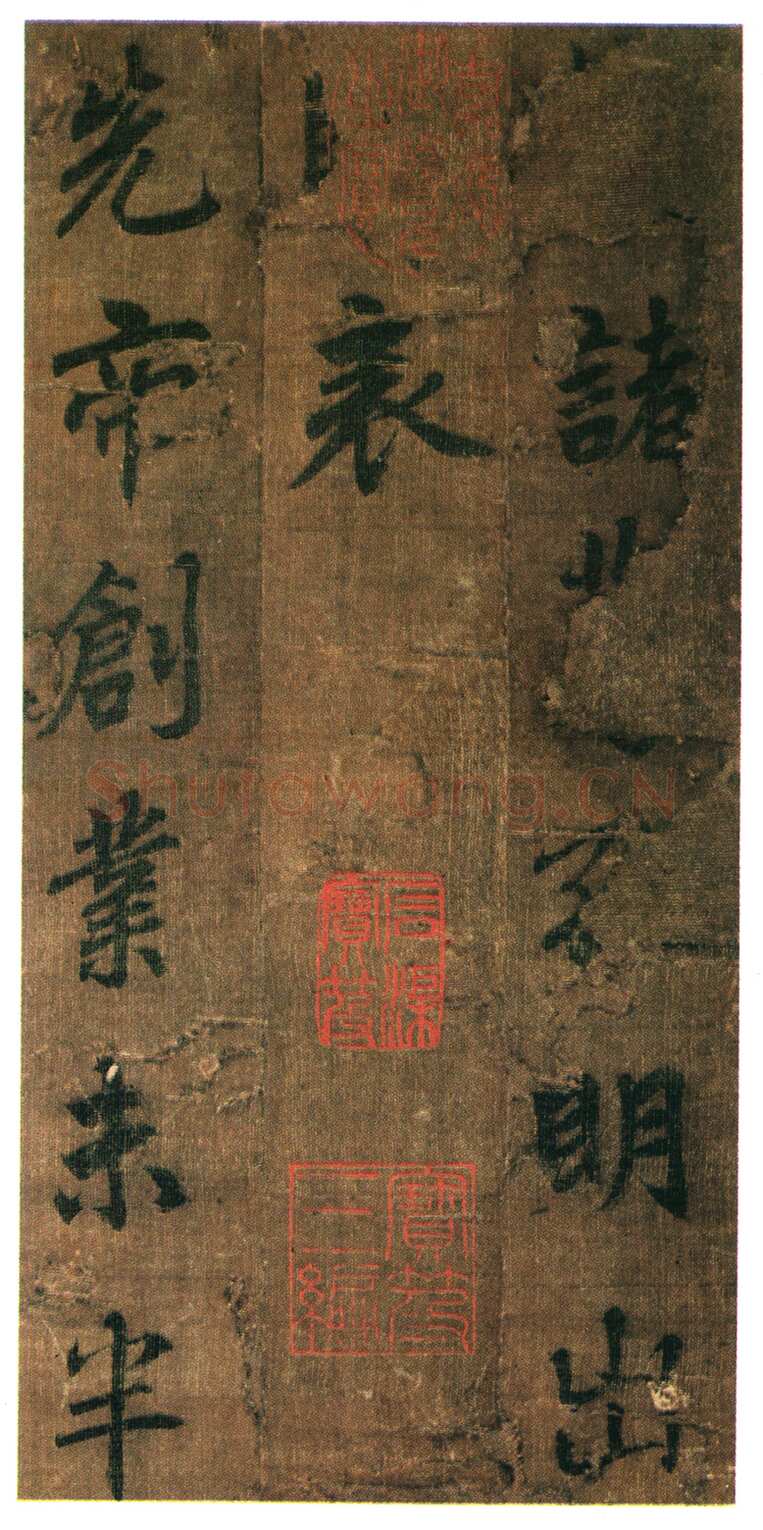 諸明出
表
先帝創業未半
石渠寶笈
寶笈三編
Shufawang.CN